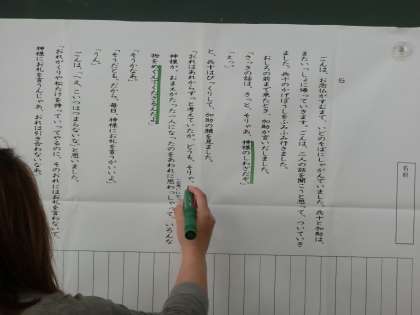 名前
５
ごんは、お念仏がすむまで、いどのそばにしゃがんでいました。兵十と加助は、
またいっしょに帰っていきます。ごんは、二人の話を聞こうと思って、ついていき
ました。兵十のかげぼうしをふみふみ行きました。
おしろの前まで来たとき、加助が言いだしました。
「さっきの話は、きっと、そりゃあ、神様のしわざだぞ。」
「えっ。」
と、兵十はびっくりして、加助の顔を見ました。
「おれはあれからずっと考えていたが、どうも、そりゃ、
神様が、おまえがたった一人になったのをあわれに思わっしゃって、いろんな
物をめぐんでくださるんだよ。」
「そうかなあ。」
「そうだとも。だから、毎日、神様にお礼を言うがいいよ。」
「うん。」
ごんは、「へえ、こいつはつまらないな。」と思いました。
「おれがくりや松たけを持っていってやるのに、そのおれにはお礼を言わないで、
神様にお礼を言うんじゃあ、おれは引き合わないなあ。